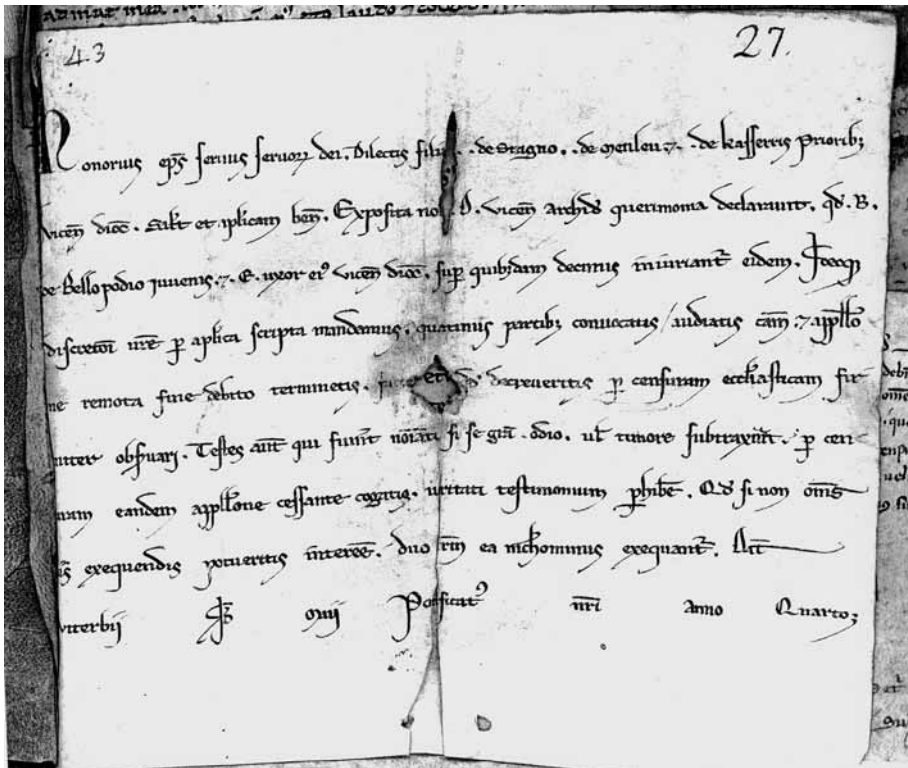 43 27.
Honorius ep̄s servus servoꝝ dei. Dilectis filiis . . de Stagno . . de Menleu ⁊ . . de kasserris Prioribꝫ
vicen̄ dioc̄ . Salt̄ et ap̄licam ben̄ . Exposita nob̄ . vicen̄ archid̄s querimonia declaravit . qđ . B .
de Bellopodio juvenis . ⁊ . E . uxor eiꝰ vicen̄ dioc̄ . suꝑ quibusdam decimis iniuriant̄ eidem .
discretōi vr̄e ꝑ ap̄lica scripta mandamus . quatinus partibꝫ convocatis / audiatis cām . ⁊ appll̄o
ne remota fine debito terminetis . qđ decreveritis ꝑ censuram eccl̄iasticam fir
miter obs̄vari . Testes aūt qui fuer̄it noīati si se grā . odio . vl̄ timore subtraxer̄it . ꝑ cen
suram eandem appll̄one cessante cogatis . v̄itati testimonium ꝑhibe͞ . Qđ si non om̄s
exequendis potueritis intereē . duo vr̄m ea nichominus exequant̄ . Dat̄
viterbii Pontificatꝰ nr̄i Anno Quarto ;